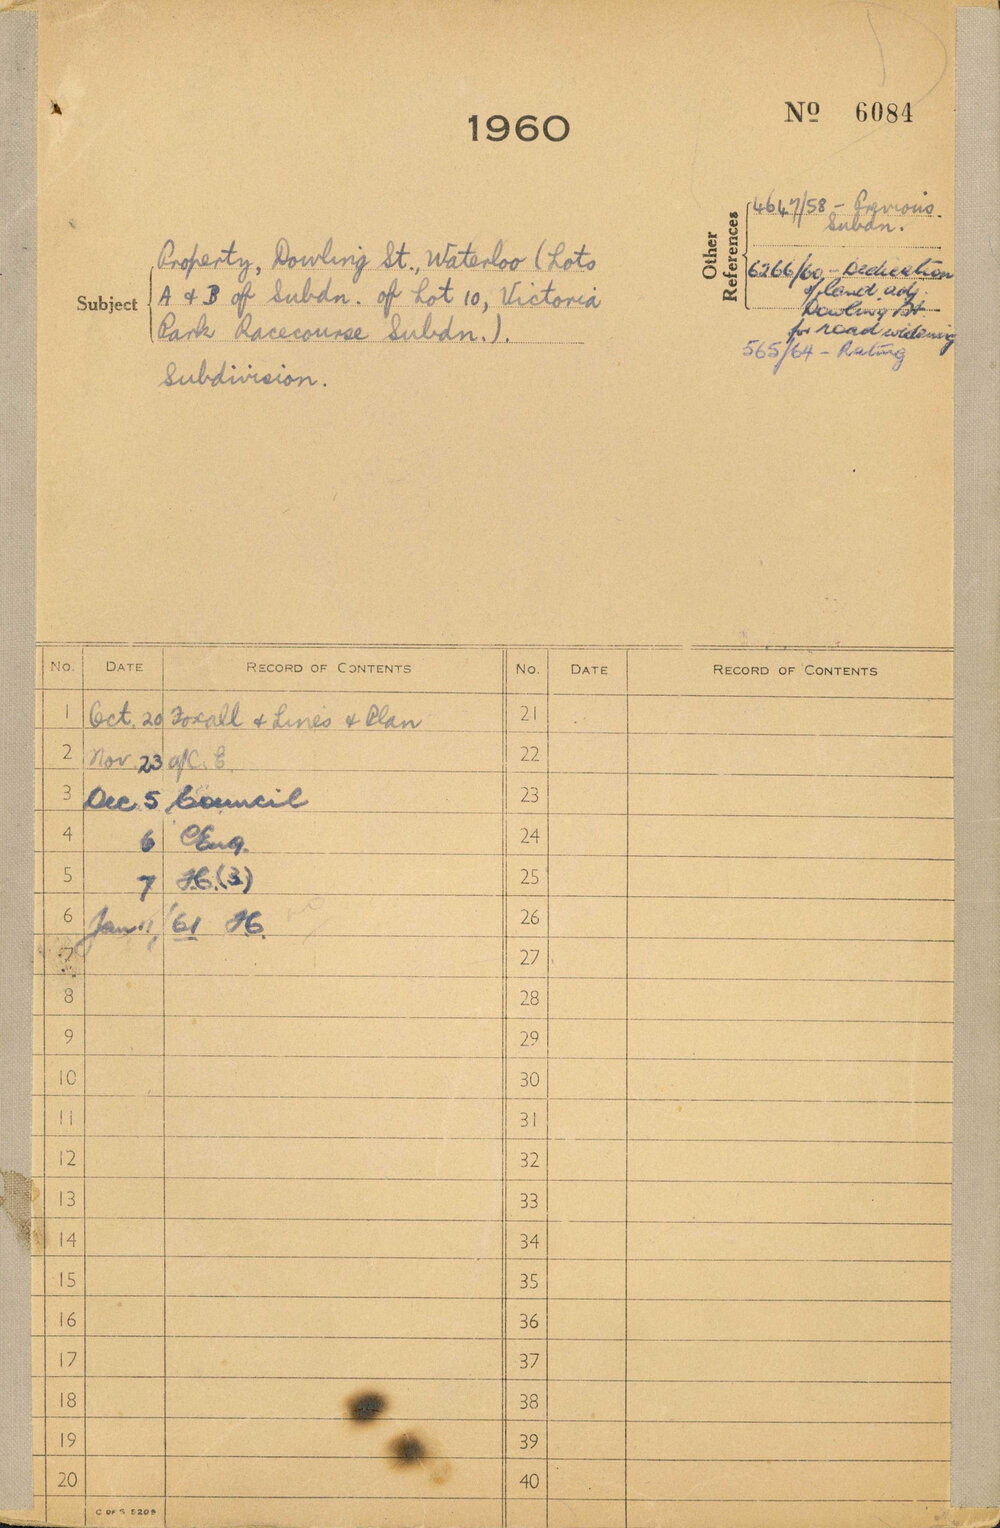 1960
Nº 6084
Other References
4647/58 - Previous
Subdn.
6266/60 - Dedication
of land adj.
Dowling St
for road widening
565/64 - Rating
Subject
Property, Dowling St., Waterloo (Lots
A & B of Subdn. of Lot 10, Victoria
Park Racecourse Subdn.).
Subdivision.
No. DATE RECORD OF CONTENTS
1 Oct. 20 Foxall & Lines & Plan
2 Nov. 23 C.E.
3 Dec. 5 Council
4 6 CEng.
5 7 (3)
6 Jan 11, '61
7
8
9
10
11
12
13
14
15
16
17
18
19
20
C OF S 5209
No. DATE RECORD OF CONTENTS
21
22
23
24
25
26
27
28
29
30
31
32
33
34
35
36
37
38
39
40